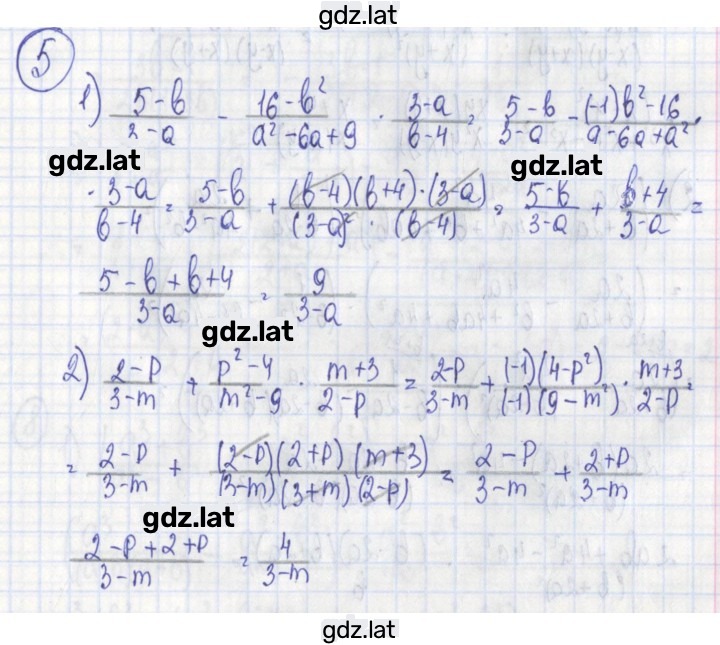 gdz.lat
5
1) (5-в)/(2-a) - (16-в²)/(a²-6a+9) · (3-a)/(в-4) = (5-в)/(3-a) - ((-1)в²-16)/(9-6a+a²) ·
gdz.lat gdz.lat
· (3-a)/(в-4) = (5-в)/(3-a) + ((в-4)(в+4)·(3-a))/((3-a)²·(в-4)) = (5-в)/(3-a) + (в+4)/(3-a) =
(5-в+в+4)/(3-a) = 9/(3-a)
gdz.lat
2) (2-p)/(3-m) + (p²-4)/(m²-9) · (m+3)/(2-p) = (2-p)/(3-m) + ((-1)(4-p²))/((-1)(9-m²)) · (m+3)/(2-p) =
= (2-p)/(3-m) + ((2-p)(2+p)(m+3))/((3-m)(3+m)(2-p)) = (2-p)/(3-m) + (2+p)/(3-m)
gdz.lat
(2-p+2+p)/(3-m) = 4/(3-m)
gdz.lat